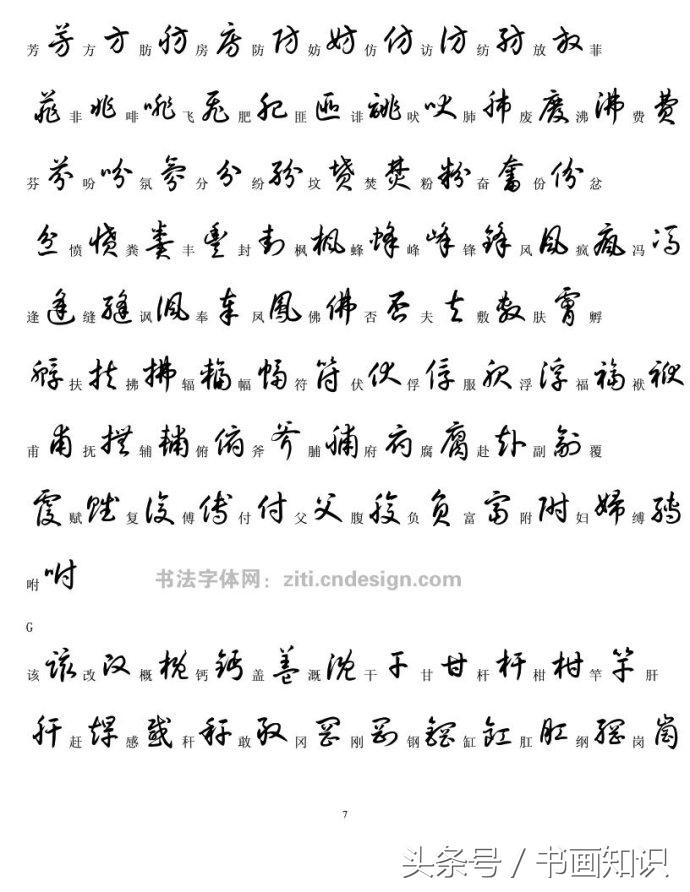 芳 芳 方 方 肪 肪 房 房 防 防 妨 妨 仿 仿 访 訪 纺 紡 放 放 菲
菲 非 非 啡 啡 飞 飛 肥 肥 匪 匪 诽 誹 吠 吠 肺 肺 废 廢 沸 沸 费 費
芬 芬 吩 吩 氛 氛 分 分 纷 紛 坟 墳 焚 焚 粉 粉 奋 奮 份 份 忿
忿 愤 憤 粪 糞 丰 豐 封 封 枫 楓 蜂 蜂 峰 峰 锋 鋒 风 風 疯 瘋 冯 馮
逢 逢 缝 縫 讽 諷 奉 奉 凤 鳳 佛 佛 否 否 夫 夫 敷 敷 肤 膚 孵
孵 扶 扶 拂 拂 辐 輻 幅 幅 符 符 伏 伏 俘 俘 服 服 浮 浮 福 福 袱 袱
甫 甫 抚 撫 辅 輔 俯 俯 斧 斧 脯 脯 府 府 腐 腐 赴 赴 副 副 覆
覆 赋 賦 复 復 傅 傅 付 付 父 父 腹 腹 负 負 富 富 附 附 妇 婦 缚 縛
咐 咐 书法字体网：ziti.cndesign.com
G
该 該 改 改 概 概 钙 鈣 盖 蓋 溉 溉 干 干 甘 甘 杆 杆 柑 柑 竿 竿 肝
肝 赶 趕 感 感 秆 稈 敢 敢 冈 岡 刚 剛 钢 鋼 缸 缸 肛 肛 纲 綱 岗 崗
7
头条号 / 书画知识